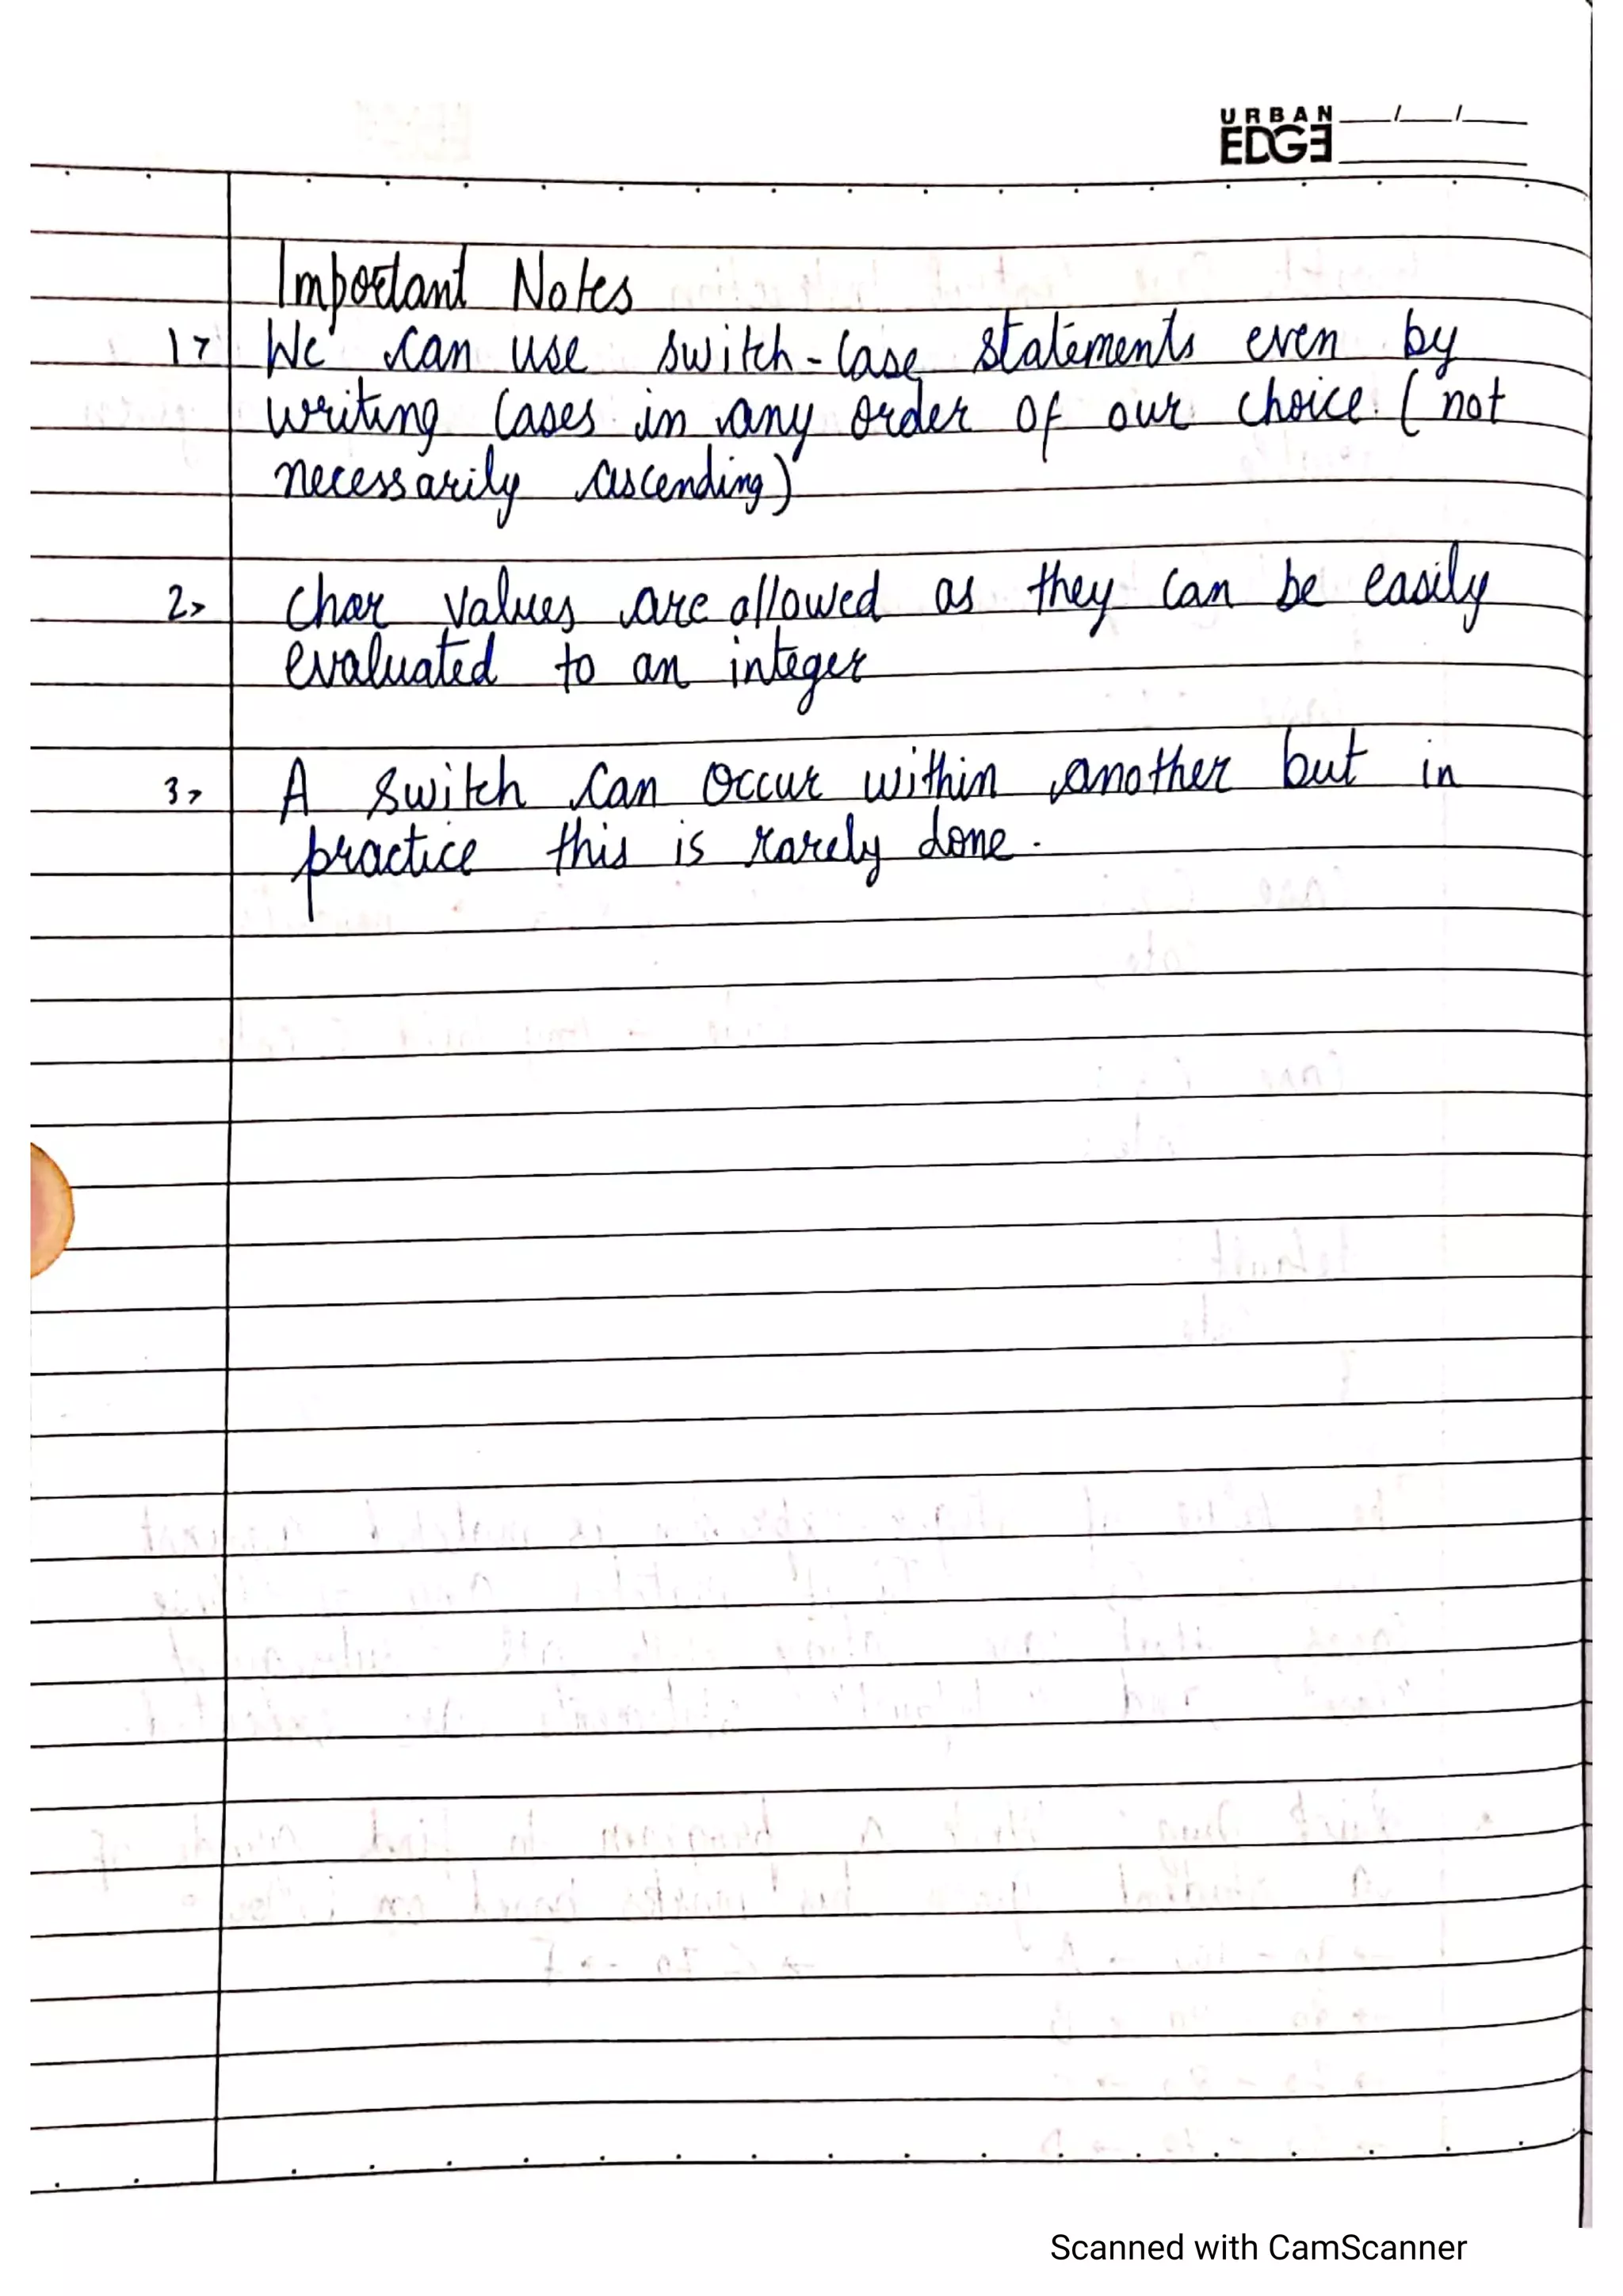 URBAN
EDGE
Important Notes
1> We can use switch-case statements even by
writing cases in any order of our choice. (not
necessarily ascending)
2> Char values are allowed as they can be easily
evaluated to an integer
3> A switch can occur within another but in
practice this is rarely done.
Scanned with CamScanner